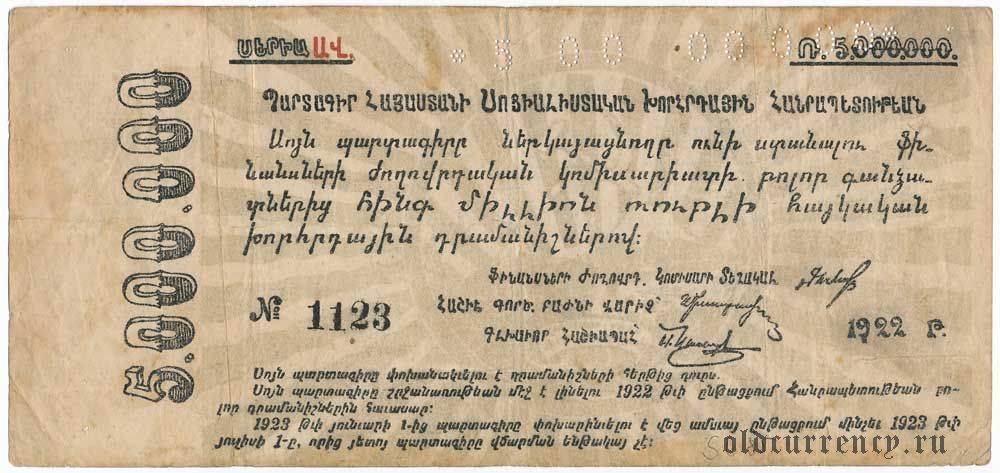 ՍԵՐԻԱ ԱՎ.
5 00 00 00 0
Ռ. 5.000.000.
5.000.000
ՊԱՐՏԱԳԻՐ ՀԱՅԱՍՏԱՆԻ ՍՈՑԻԱԼԻՍՏԱԿԱՆ ԽՈՐՀՐԴԱՅԻՆ ՀԱՆՐԱՊԵՏՈՒԹԵԱՆ
Սոյն պարտագիրը ներկայացնողը ունի ստանալու ֆի-
նանսների ժողովրդական կոմիսարիատի բոլոր գանձա-
տներից հինգ միլլիոն ռուբլի հայկական
խորհրդային դրամանիշներով:
ՖԻՆԱՆՍՆԵՐԻ ԺՈՂՈՎՐԴ. ԿՈՄԻՍԱՐԻ ՏԵՂԱԿԱԼ
ՀԱՇՒԵ ԳՈՐԾ. ԲԱԺՆԻ ՎԱՐԻՉ
ԳԼԽԱՒՈՐ ՀԱՇՒԱՊԱՀ
№ 1123
1922 Թ.
Սոյն պարտագիրը փոխանակւելու է դրամանիշների հերթից դուրս.
Սոյն պարտագիրը շրջանառութեան մէջ է լինելու 1922 թւի ընթացքում Հանրապետութեան բո-
լոր դրամանիշներին հաւասար:
1923 թւի յունւարի 1-ից պարտագիրը փոխարինւելու է վեց ամսւայ ընթացքում մինչեւ 1923 թւի
յուլիսի 1-ը, որից յետոյ պարտագիրը վճարման ենթակայ չէ:
oldcurrency.ru